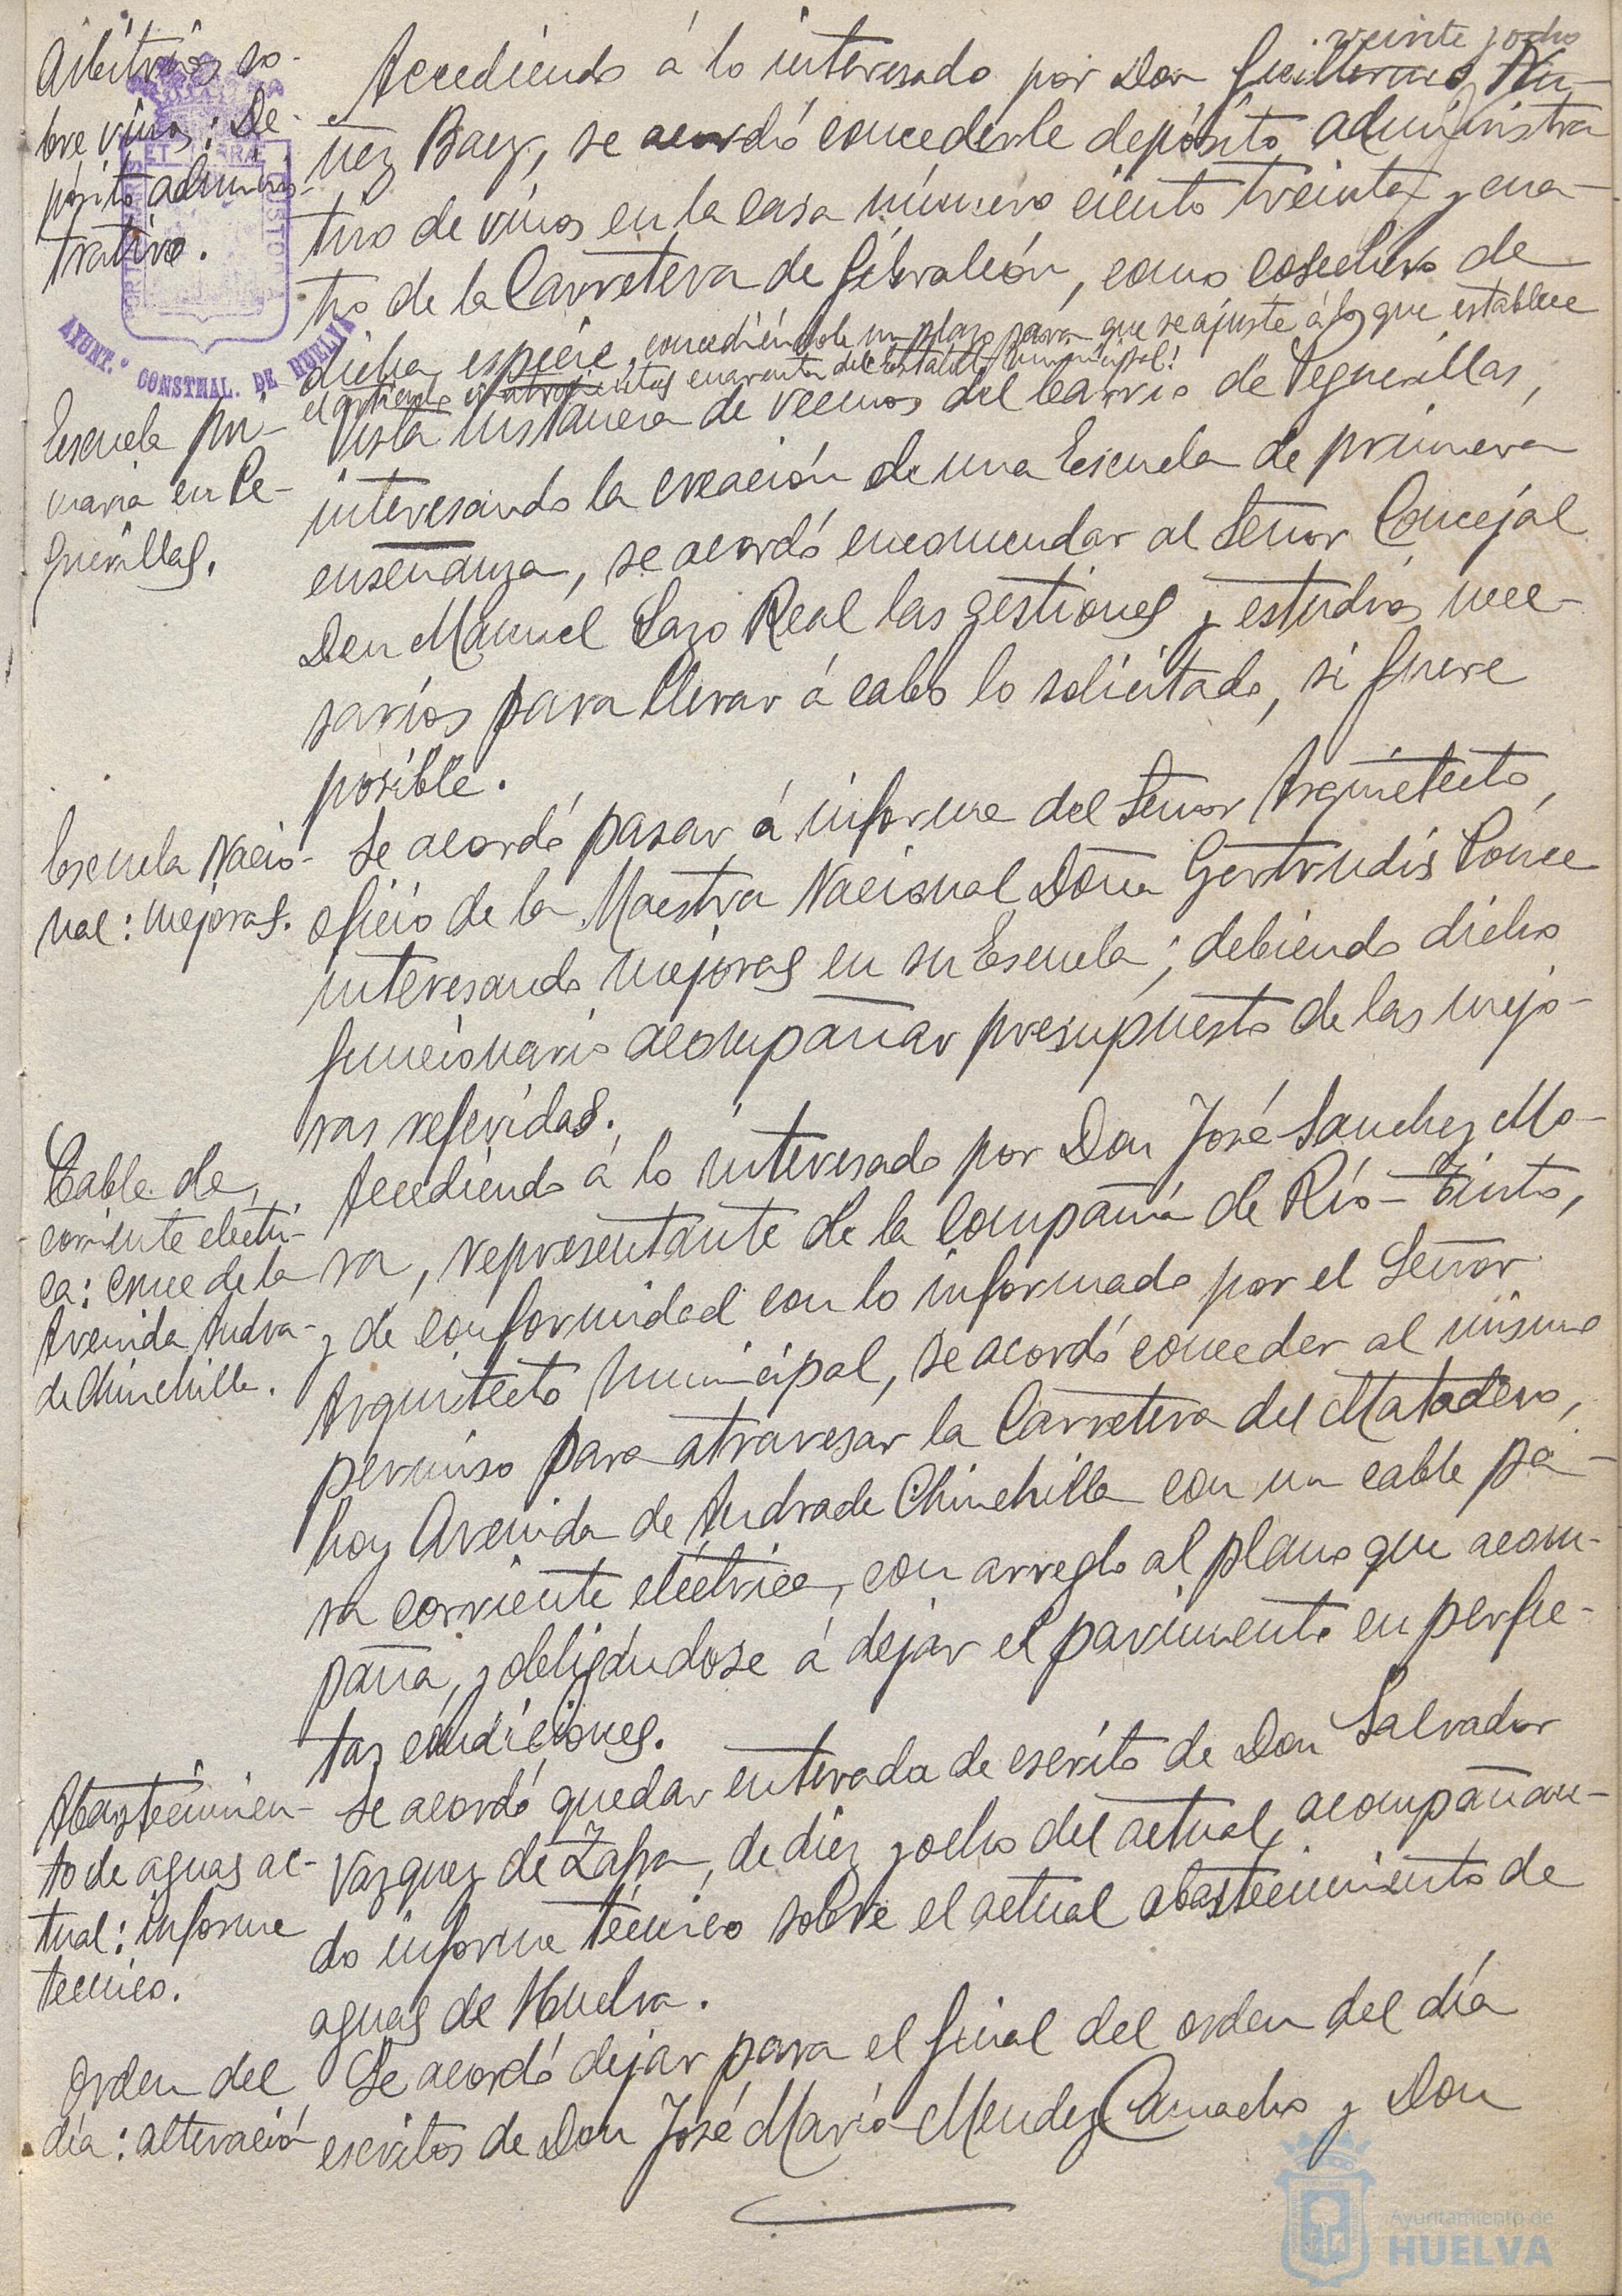 veinte y ocho
Arbitrios so-
bre vinos: De-
pósito adminis-
trativo.
Accediendo á lo interesado por Don Guillermo Nu-
ñez Baez, se acordó concederle depósito administra
tivo de vinos en la casa número ciento treinta y cua-
tro de la Carretera de Gibraleón, como cosechero de
dicha especie, concediéndole un plazo para que se ajuste á lo que establece
el artículo cuatrocientos cuarenta del Estatuto municipal.
AYUNT.º CONSTNAL. DE HUELVA
Escuela pri-
maria en Pe-
guerillas.
Vista instancia de vecinos del barrio de Peguerillas,
interesando la creación de una Escuela de primera
enseñanza, se acordó encomendar al Señor Concejal
Don Manuel Lazo Real las gestiones y estudios nece-
sarios para llevar á cabo lo solicitado, si fuere
posible.
Escuela Nacio-
nal: mejoras.
Se acordó pasar á informe del Señor Arquitecto,
oficio de la Maestra Nacional Doña Gertrudis Ponce
interesando mejoras en su Escuela; debiendo dicho
funcionario acompañar presupuesto de las mejo-
ras referidas.
Cable de
corriente eléctri-
ca: cruce de la
Avenida Andra-
de Chinchilla.
Accediendo á lo interesado por Don José Sanchez Mo-
ra, representante de la Compañía de Río-Tinto,
y de conformidad con lo informado por el Señor
Arquitecto municipal, se acordó conceder al mismo
permiso para atravesar la Carretera del Matadero,
hoy Avenida de Andrade Chinchilla con un cable pa-
ra corriente eléctrica, con arreglo al plano que acom-
paña, y obligándose á dejar el pavimento en perfec-
tas condiciones.
Abastecimien-
to de aguas ac-
tual: informe
tecnico.
Se acordó quedar enterada de escrito de Don Salvador
Vazquez de Zafra, de diez y ocho del actual, acompañan-
do informe técnico sobre el actual abastecimiento de
aguas de Huelva.
Orden del
día: alteración
Se acordó dejar para el final del orden del día
escritos de Don José María Mendez Camacho y Don
Ayuntamiento de
HUELVA